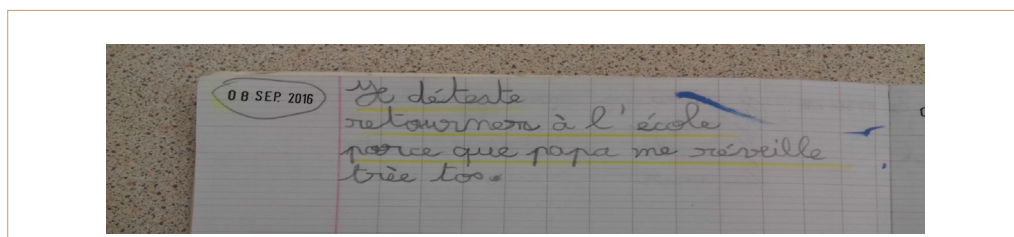 08 SEP. 2016
Je déteste
retourners à l'école
parce que papa me réveille
trèe tos.